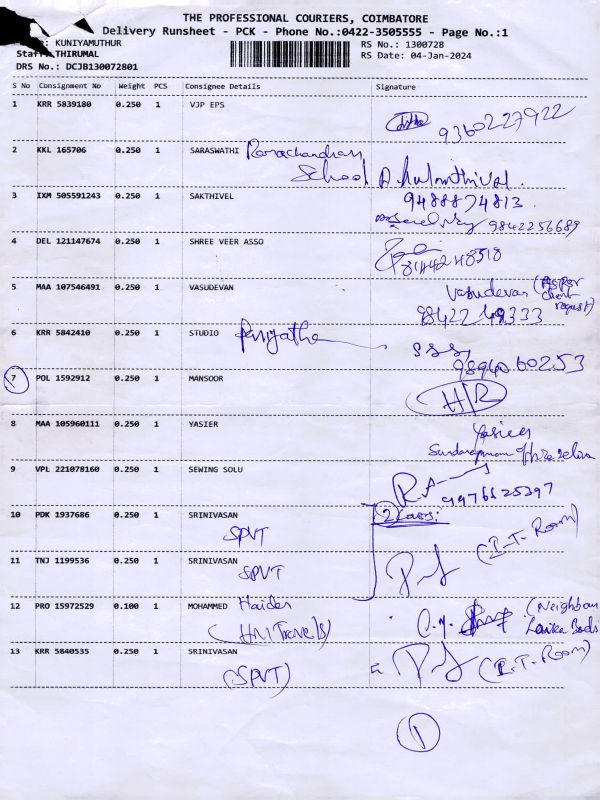 THE PROFESSIONAL COURIERS, COIMBATORE
Delivery Runsheet - PCK - Phone No.:0422-3505555 - Page No.:1
KUNIYAMUTHUR RS No.: 1300728
Staff: THIRUMAL RS Date: 04-Jan-2024
DRS No.: DCJB130072801
S No Consignment No Weight PCS Consignee Details Signature
1 KRR 5839180 0.250 1 VJP EPS
9360227922
2 KKL 165706 0.250 1 SARASWATHI Ramachandran
School
3 IXM 505591243 0.250 1 SAKTHIVEL 9488874813
9842256689
4 DEL 121147674 0.250 1 SHREE VEER ASSO
8144248518
5 MAA 107546491 0.250 1 VASUDEVAN Vasudevan (As per
client
request)
9842249333
6 KRR 5842410 0.250 1 STUDIO
98940.60253
7 POL 1592912 0.250 1 MANSOOR
H/R
8 MAA 105960111 0.250 1 YASIER Yasier
9 VPL 221078160 0.250 1 SEWING SOLU
9976525397
10 PDK 1937686 0.250 1 SRINIVASAN
SPVT (I-T-Room)
11 TNJ 1199536 0.250 1 SRINIVASAN
SPVT
12 PRO 15972529 0.100 1 MOHAMMED Haider (Neighbour
(HM Travels)
13 KRR 5840535 0.250 1 SRINIVASAN (I-T-Room)
(SPVT)
1